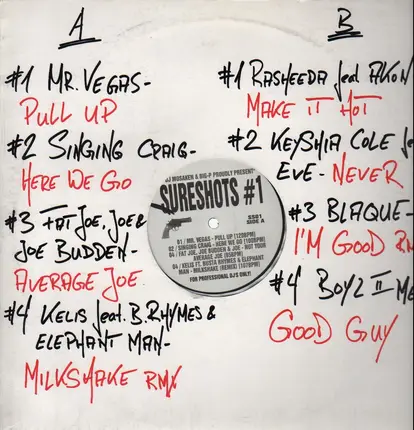 A
#1 MR. VEGAS-
PULL UP
#2 SINGING CRAIG-
HERE WE GO
#3 FAT JOE, JOE &
JOE BUDDEN-
AVERAGE JOE
#4 KELIS feat. B. RHYMES &
ELEPHANT MAN-
MILKSHAKE RMX
B
#1 RASHEEDA feat AKON
MAKE IT HOT
#2 KEYSHIA COLE fe
EVE- NEVER
#3 BLAQUE-
I'M GOOD RM
#4 BOYZ II ME
GOOD GUY
DJ MOSAKEN & BIG-P PROUDLY PRESENT
SURESHOTS #1
SS01
SIDE A
01 / MR. VEGAS - PULL UP (129BPM)
02 / SINGING CRAIG - HERE WE GO (100BPM)
03 / FAT JOE, JOE BUDDEN & JOE - NOT YOUR
AVERAGE JOE (95BPM)
04 / KELIS FT. BUSTA RHYMES & ELEPHANT
MAN - MILKSHAKE (REMIX) (107BPM)
FOR PROFESSIONAL DJS ONLY!